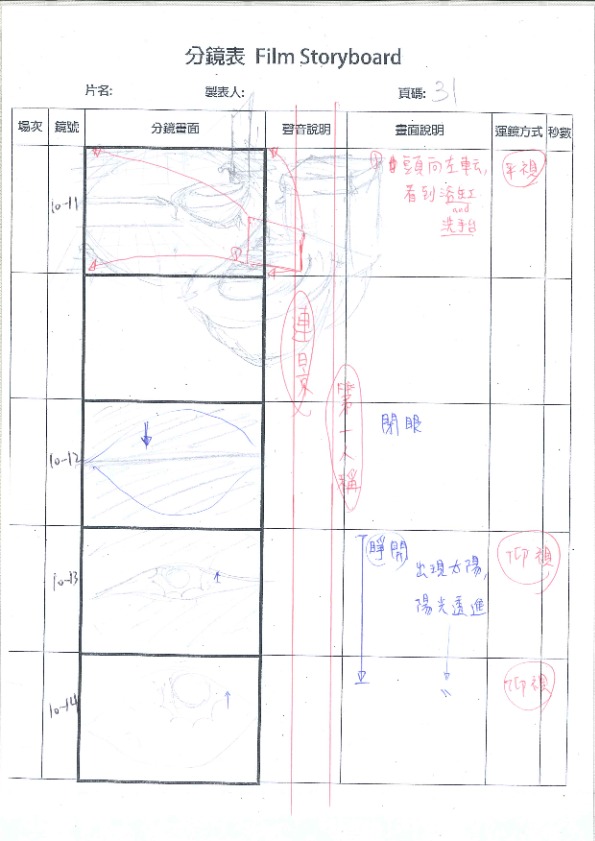 分鏡表 Film Storyboard
片名:
製表人:
頁碼: 31
場次
鏡號
分鏡畫面
聲音說明
畫面說明
運鏡方式
秒數
10-11
① 頭向左転,
看到浴缸
and
洗手台
平視
連景
第一人稱
10-12
閉眼
10-13
睜開
出現太陽,
陽光透進
仰視
10-14
〃
仰視